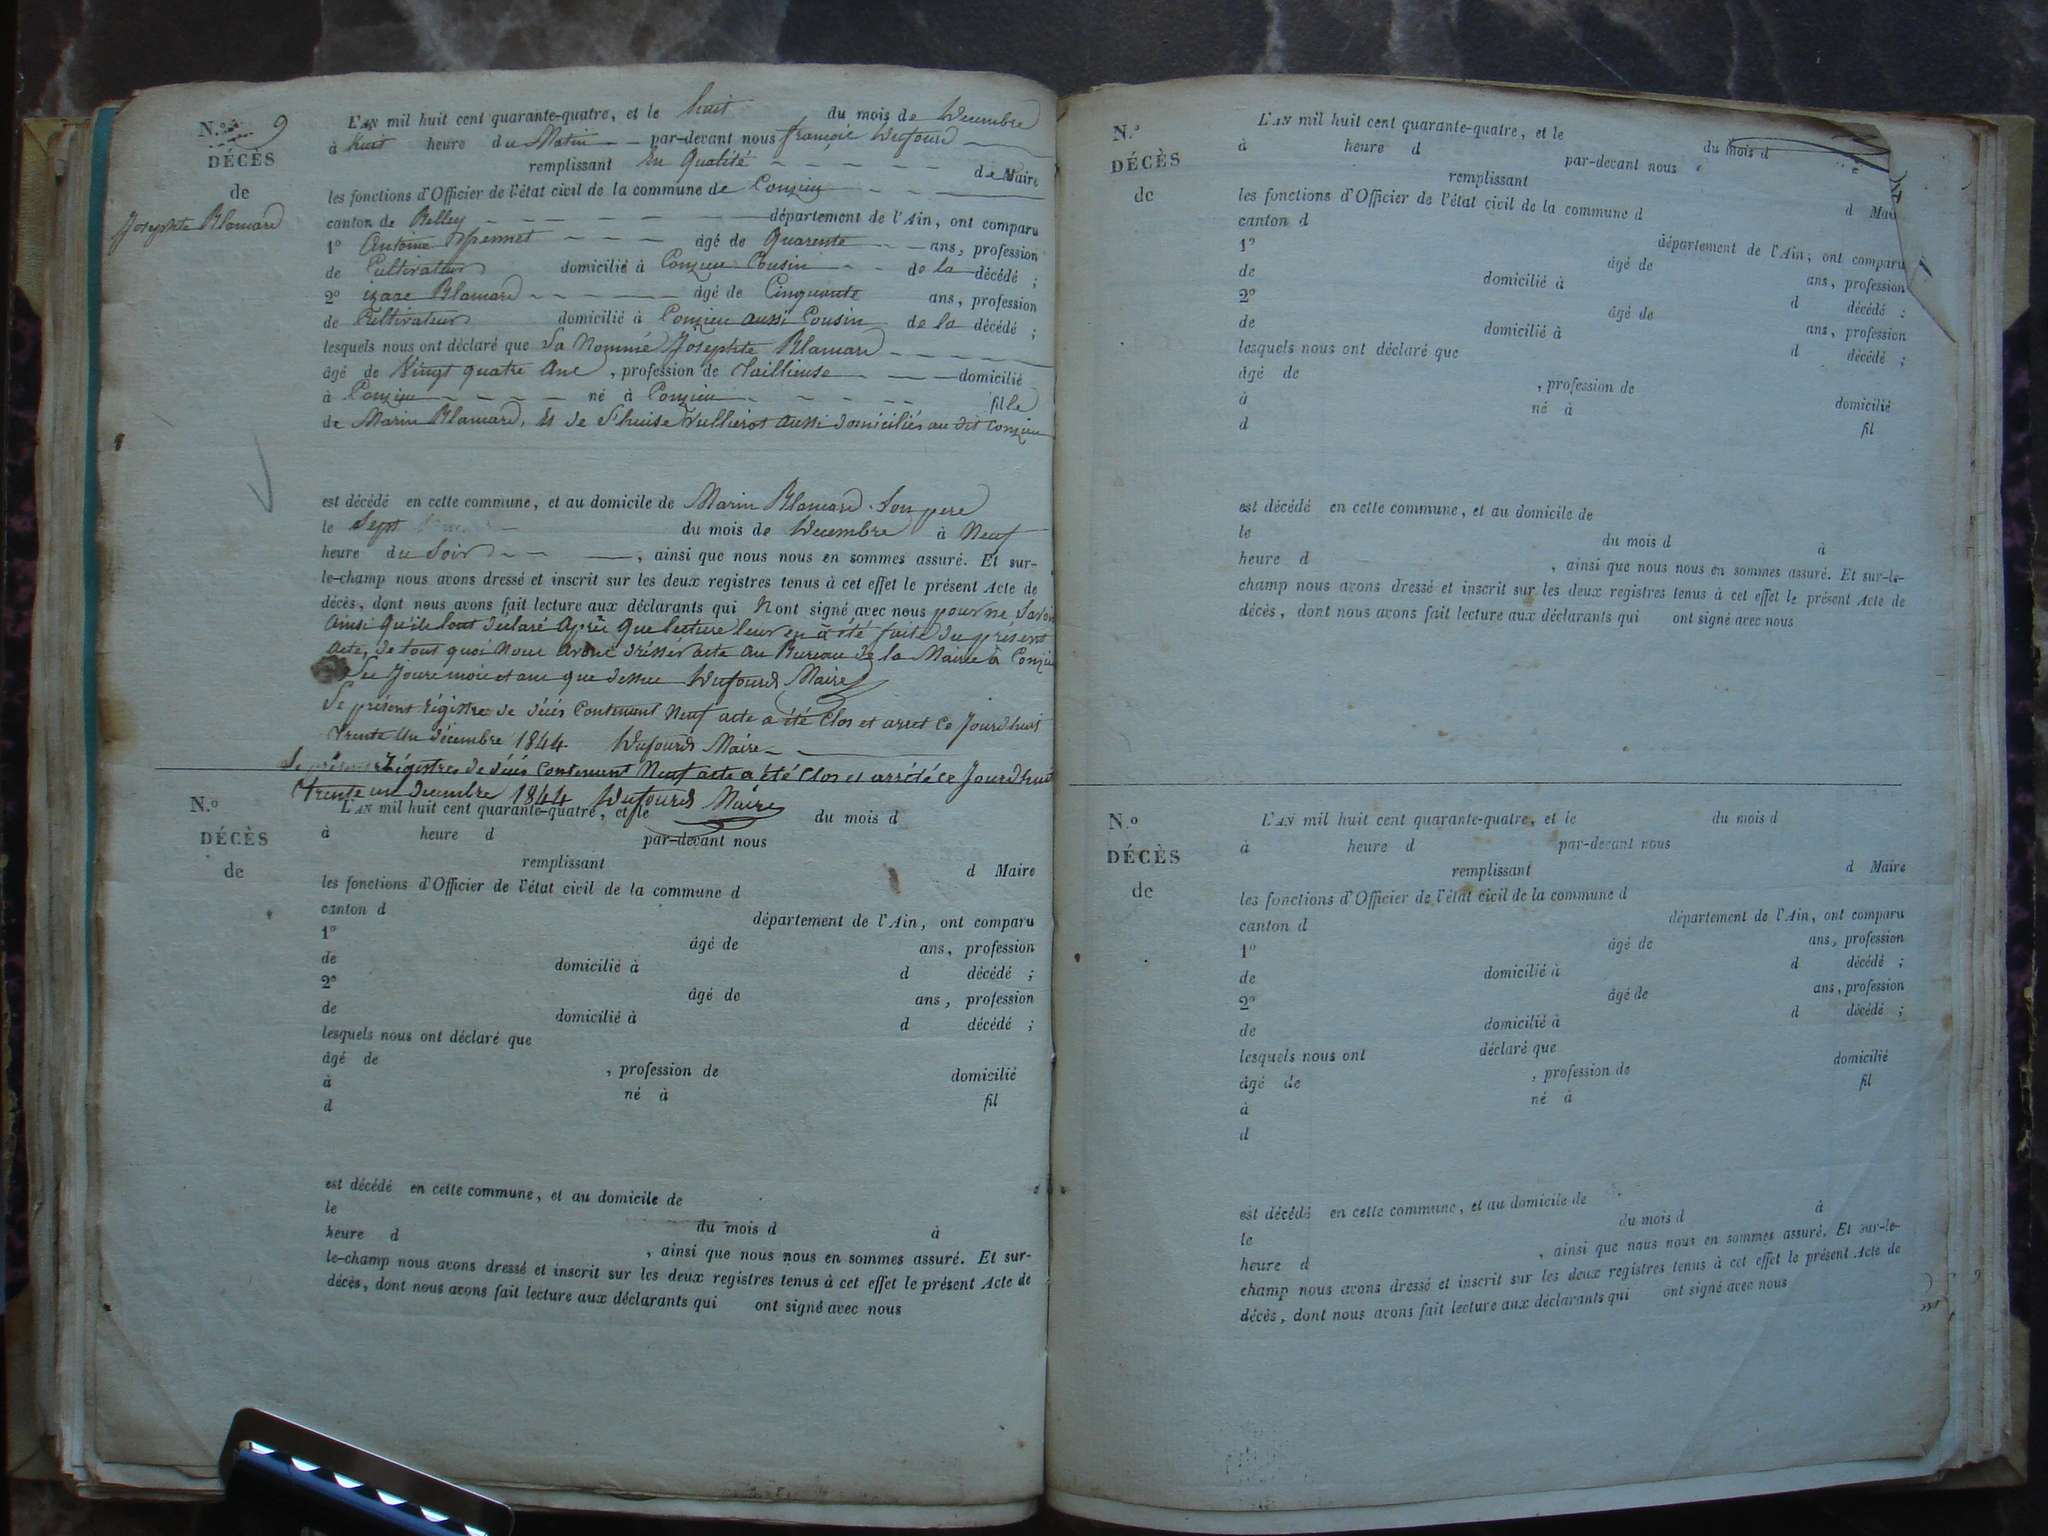 N.o 9
DÉCÈS
de
Josephte Blanard
L'AN mil huit cent quarante-quatre, et le huit du mois de Decembre
à huit heure du Matin par-devant nous françois Dufourd
remplissant En Qualité de Maire
les fonctions d'Officier de l'état civil de la commune de Conzieu
canton de Belley département de l'Ain, ont comparu
1o Antoine âgé de Quarente ans, profession
de Cultivateur domicilié à Conzieu Cousin de la décédé ;
2o izaac Blanard âgé de Cinquante ans, profession
de Cultivateur domicilié à Conzieu aussi Cousin de la décédé ;
lesquels nous ont déclaré que La Nommé Josephte Blanard
âgé de Vingt quatre Anc , profession de Taillieuse domicilié
à Conzieu né à Conzieu fille
de Marin Blanard, Et de aussi domiciliés au dit Conzieu
est décédé en cette commune, et au domicile de Marin Blanard Son pere
le Sept du mois de Decembre à Neuf
heure du Soir , ainsi que nous nous en sommes assuré. Et sur-
le-champ nous avons dressé et inscrit sur les deux registres tenus à cet effet le présent Acte de
décès, dont nous avons fait lecture aux déclarants qui N ont signé avec nous pour ne Savoir
Ainsi qu'ils lont déclaré Après que lecture leur en a été faite du présent
acte, de tout quoi Nous avons dréssér acte au Bureau de la Mairie à Conzieu
Les Jours mois et ans que dessus Dufourd Maire
Le présent régistre de décés Contenant Neuf acte a été Clos et arret ce Jourdhuit
trente un décembre 1844 Dufourd Maire
Le présent Régistre de décés Contenant Neuf acte a été Clos et arrété ce Jourdhuit
trente un decembre 1844 Dufourd Maire
N.o
DÉCÈS
de
L'AN mil huit cent quarante-quatre, et le du mois d
à heure d par-devant nous
remplissant d Maire
les fonctions d'Officier de l'état civil de la commune d
canton d département de l'Ain, ont comparu
1o âgé de ans, profession
de domicilié à d décédé ;
2o âgé de ans, profession
de domicilié à d décédé ;
lesquels nous ont déclaré que
âgé de , profession de domicilié
à né à fil
d
est décédé en cette commune, et au domicile de
le du mois d à
heure d , ainsi que nous nous en sommes assuré. Et sur-
le-champ nous avons dressé et inscrit sur les deux registres tenus à cet effet le présent Acte de
décès, dont nous avons fait lecture aux déclarants qui ont signé avec nous
N.o
DÉCÈS
de
L'AN mil huit cent quarante-quatre, et le du mois d
à heure d par-devant nous
remplissant d Mai
les fonctions d'Officier de l'état civil de la commune d
canton d département de l'Ain, ont comparu
1o âgé de ans, profession
de domicilié à d décédé ;
2o âgé de ans, profession
de domicilié à d décédé ;
lesquels nous ont déclaré que
âgé de , profession de domicilié
à né à fil
d
est décédé en cette commune, et au domicile de
le du mois d à
heure d , ainsi que nous nous en sommes assuré. Et sur-le-
champ nous avons dressé et inscrit sur les deux registres tenus à cet effet le présent Acte de
décès, dont nous avons fait lecture aux déclarants qui ont signé avec nous
N.o
DÉCÈS
de
L'AN mil huit cent quarante-quatre, et le du mois d
à heure d par-devant nous
remplissant d Maire
les fonctions d'Officier de l'état civil de la commune d
canton d département de l'Ain, ont comparu
1o âgé de ans, profession
de domicilié à d décédé ;
2o âgé de ans, profession
de domicilié à d décédé ;
lesquels nous ont déclaré que
âgé de , profession de domicilié
à né à fil
d
est décédé en cette commune, et au domicile de
le du mois d à
heure d , ainsi que nous nous en sommes assuré. Et sur-le-
champ nous avons dressé et inscrit sur les deux registres tenus à cet effet le présent Acte de
décès, dont nous avons fait lecture aux déclarants qui ont signé avec nous